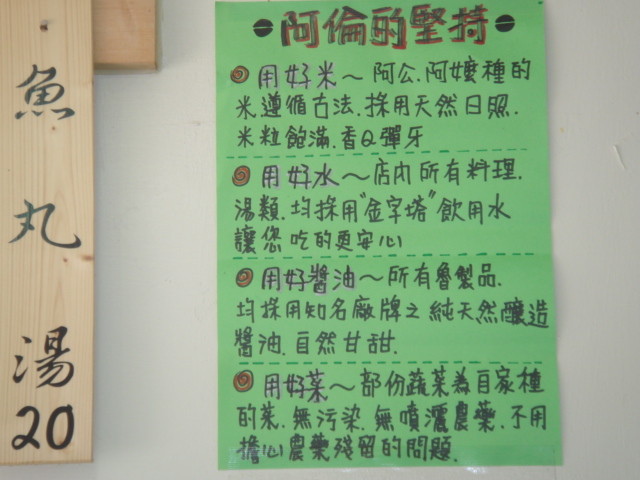 魚丸湯20
阿倫的堅持
用好米～阿公.阿嬤種的
米.遵循古法.採用天然日照.
米粒飽滿.香Q彈牙
用好水～店內所有料理.
湯類.均採用"金字塔"飲用水
讓您吃的更安心
用好醬油～所有魯製品.
均採用知名廠牌之純天然釀造
醬油.自然甘甜.
用好菜～部份蔬菜為自家種
的菜.無污染.無噴灑農藥.不用
擔心農藥殘留的問題.